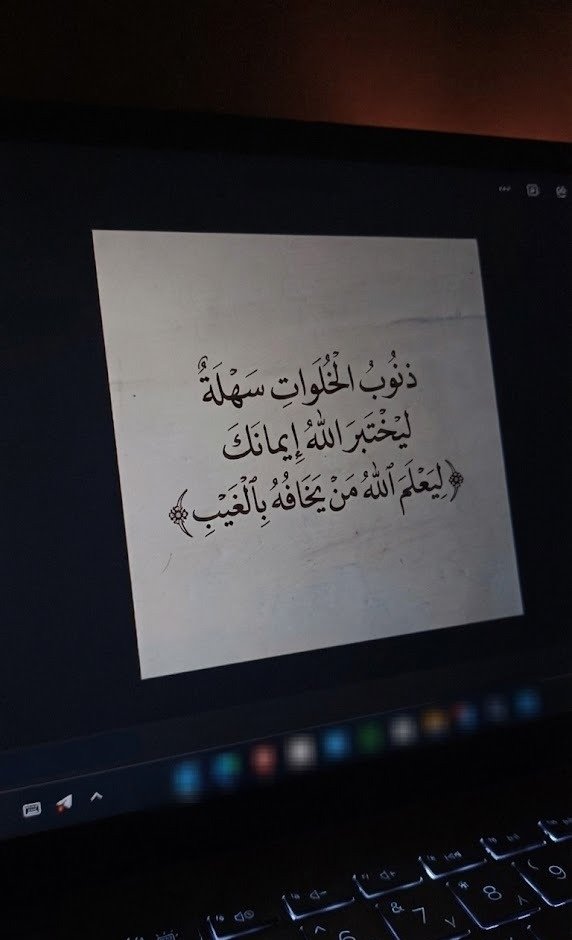 ذنُوبُ الْخُلَوَاتِ سَهْلَةٌ
لِيَخْتَبرَ اللهُ إِيمانَكَ
﴿لِيَعْلَمَ ٱللهُ مَنْ يَخَافُهُ بِٱلْغَيْبِ﴾
6
& 7 ٧
* 8 ٨
9